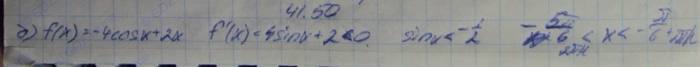 41.50
б) f(x)=-4cosx+2x f'(x)=4sinx+2<0. sinx<-1/2 -5π/6+2πn<x<-π/6+2πn